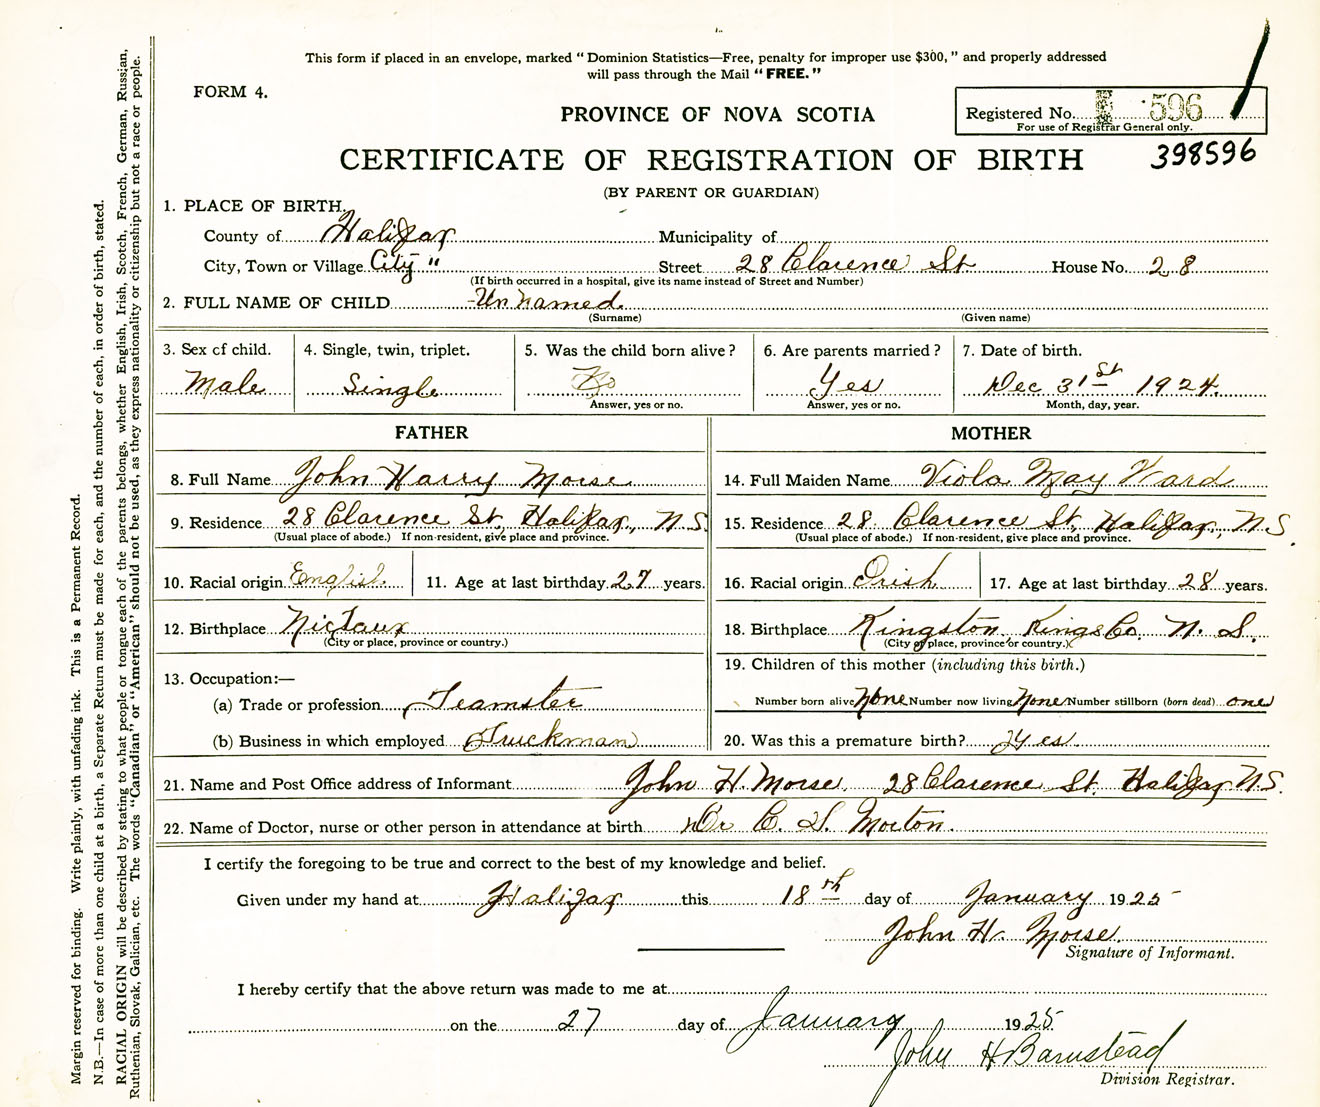 This form if placed in an envelope, marked "Dominion Statistics—Free, penalty for improper use $300," and properly addressed
will pass through the Mail "FREE."
FORM 4.
PROVINCE OF NOVA SCOTIA
Registered No. 596
For use of Registrar General only.
CERTIFICATE OF REGISTRATION OF BIRTH
398596
(BY PARENT OR GUARDIAN)
1. PLACE OF BIRTH
County of Halifax Municipality of
City, Town or Village City " Street 28 Clarence St House No. 28
(If birth occurred in a hospital, give its name instead of Street and Number)
2. FULL NAME OF CHILD Unnamed
(Surname) (Given name)
3. Sex of child. 4. Single, twin, triplet. 5. Was the child born alive? 6. Are parents married? 7. Date of birth.
Male Single No Yes Dec 31st 1924
Answer, yes or no. Answer, yes or no. Month, day, year.
FATHER MOTHER
8. Full Name John Harry Morse 14. Full Maiden Name Viola May Ward
9. Residence 28 Clarence St, Halifax, N.S. 15. Residence 28 Clarence St, Halifax, N.S.
(Usual place of abode.) If non-resident, give place and province. (Usual place of abode.) If non-resident, give place and province.
10. Racial origin English 11. Age at last birthday 27 years. 16. Racial origin Irish 17. Age at last birthday 28 years.
12. Birthplace Nictaux 18. Birthplace Kingston, Kings Co. N. S.
(City or place, province or country.) (City or place, province or country.)
19. Children of this mother (including this birth.)
13. Occupation:—
(a) Trade or profession Teamster Number born alive None Number now living None Number stillborn (born dead) one
(b) Business in which employed Truckman 20. Was this a premature birth? Yes
21. Name and Post Office address of Informant John H. Morse. 28 Clarence St. Halifax N.S.
22. Name of Doctor, nurse or other person in attendance at birth Dr C. S. Morton.
I certify the foregoing to be true and correct to the best of my knowledge and belief.
Given under my hand at Halifax this 18th day of January 1925
John H. Morse.
Signature of Informant.
I hereby certify that the above return was made to me at
on the 27 day of January 1925
John H Barnstead
Division Registrar.
Margin reserved for binding. Write plainly, with unfading ink. This is a Permanent Record.
N.B.—In case of more than one child at a birth, a Separate Return must be made for each, and the number of each, in order of birth, stated.
RACIAL ORIGIN will be described by stating to what people or tongue each of the parents belongs, whether English, Irish, Scotch, French, German, Russian,
Ruthenian, Slovak, Galician, etc. The words "Canadian" or "American" should not be used, as they express nationality or citizenship but not a race or people.